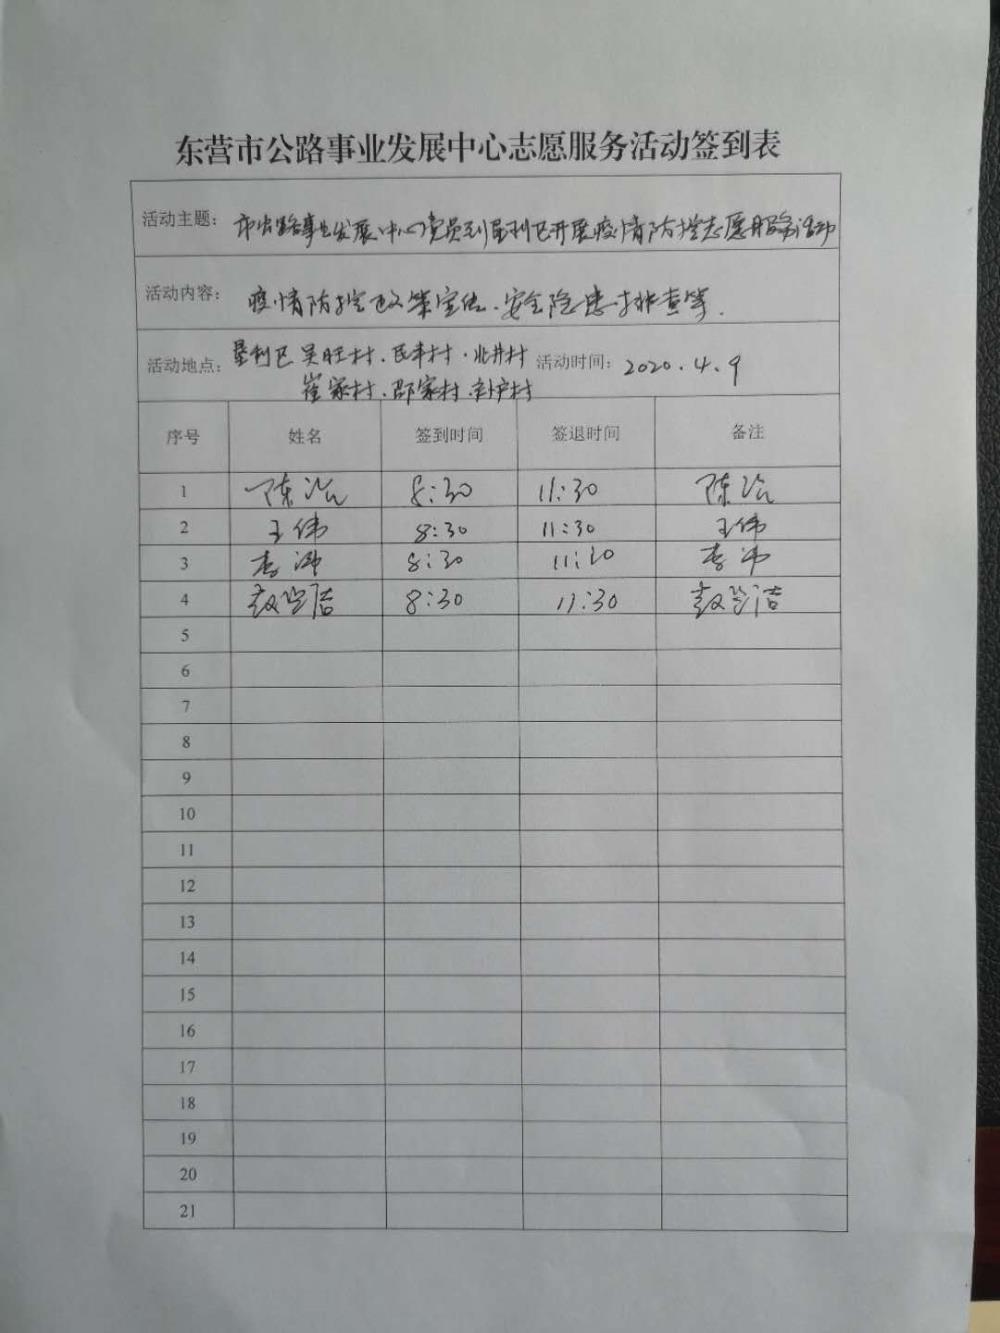 东营市公路事业发展中心志愿服务活动签到表
活动主题: 市公路事业发展中心党员到垦利区开展疫情防控志愿服务活动
活动内容: 疫情防控政策宣传、安全隐患排查等.
活动地点: 垦利区吴旺村、民丰村、北井村 活动时间: 2020.4.9
崔家村、邵家村、村
序号 姓名 签到时间 签退时间 备注
1 陈 8:30 11:30 陈
2 王伟 8:30 11:30 王伟
3 李 8:30 11:30 李
4 赵 洁 8:30 11:30 赵 洁
5
6
7
8
9
10
11
12
13
14
15
16
17
18
19
20
21